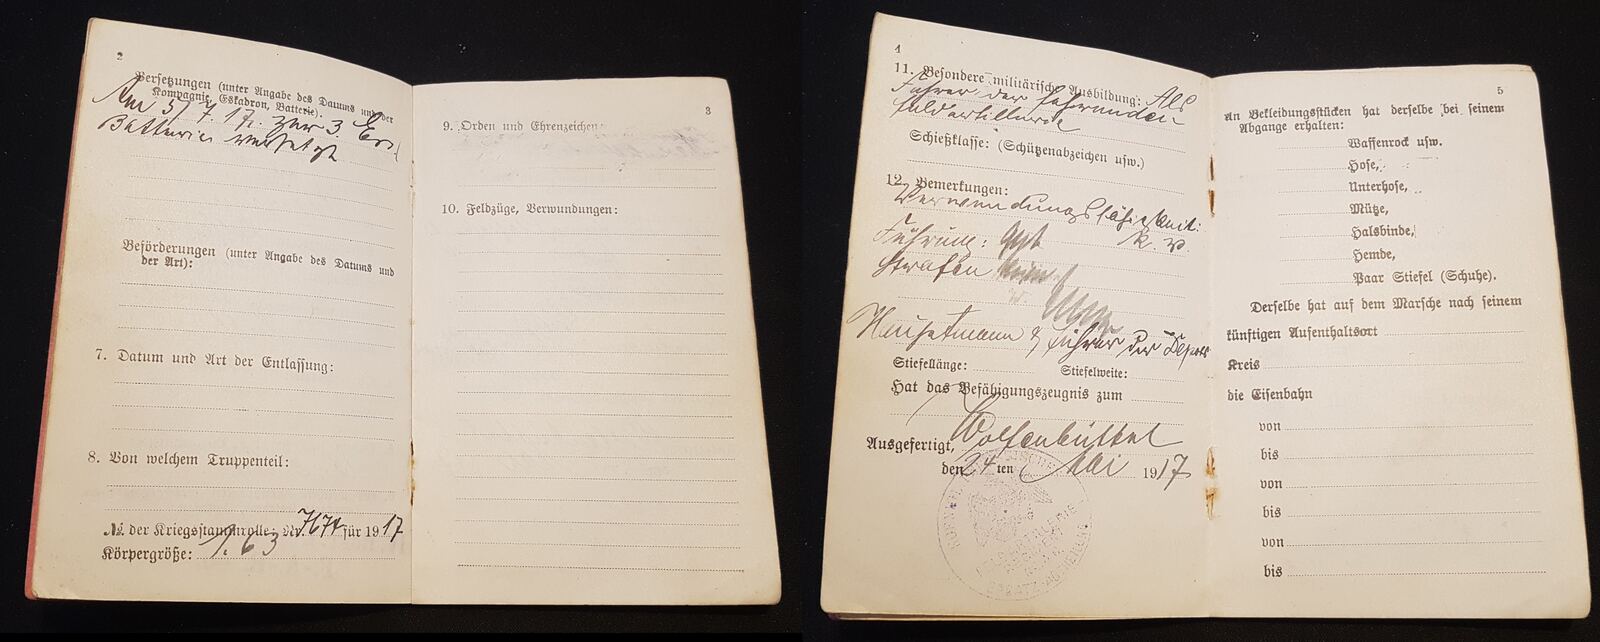 2
Versetzungen (unter Angabe des Datums und der
Kompagnie, Eskadron, Batterie).
Am 5/7. 17. zur 3. Ers.
Batterie versetzt
Beförderungen (unter Angabe des Datums und
der Art):
7. Datum und Art der Entlassung:
8. Von welchem Truppenteil:
№ der Kriegsstammrolle: Nr. 7674 für 1917
Körpergröße: 1.63
3
9. Orden und Ehrenzeichen:
10. Feldzüge, Verwundungen:
4
11. Besondere militärische Ausbildung: Als
Fahrer der fahrenden
Feldartillerie
Schießklasse: (Schützenabzeichen usw.)
12. Bemerkungen:
Verwendungsfähigkeit:
k. v.
Führung: gut
Strafen keine
& Führer der
Stiefellänge: Stiefelweite:
Hat das Befähigungszeugnis zum
Ausgefertigt, Wolfenbüttel
den 24 ten Mai 1917
5
An Bekleidungsstücken hat derselbe bei seinem
Abgange erhalten:
Waffenrock usw.
Hose,
Unterhose,
Mütze,
Halsbinde,
Hemde,
Paar Stiefel (Schuhe).
Derselbe hat auf dem Marsche nach seinem
künftigen Aufenthaltsort
Kreis
die Eisenbahn
von
bis
von
bis
von
bis